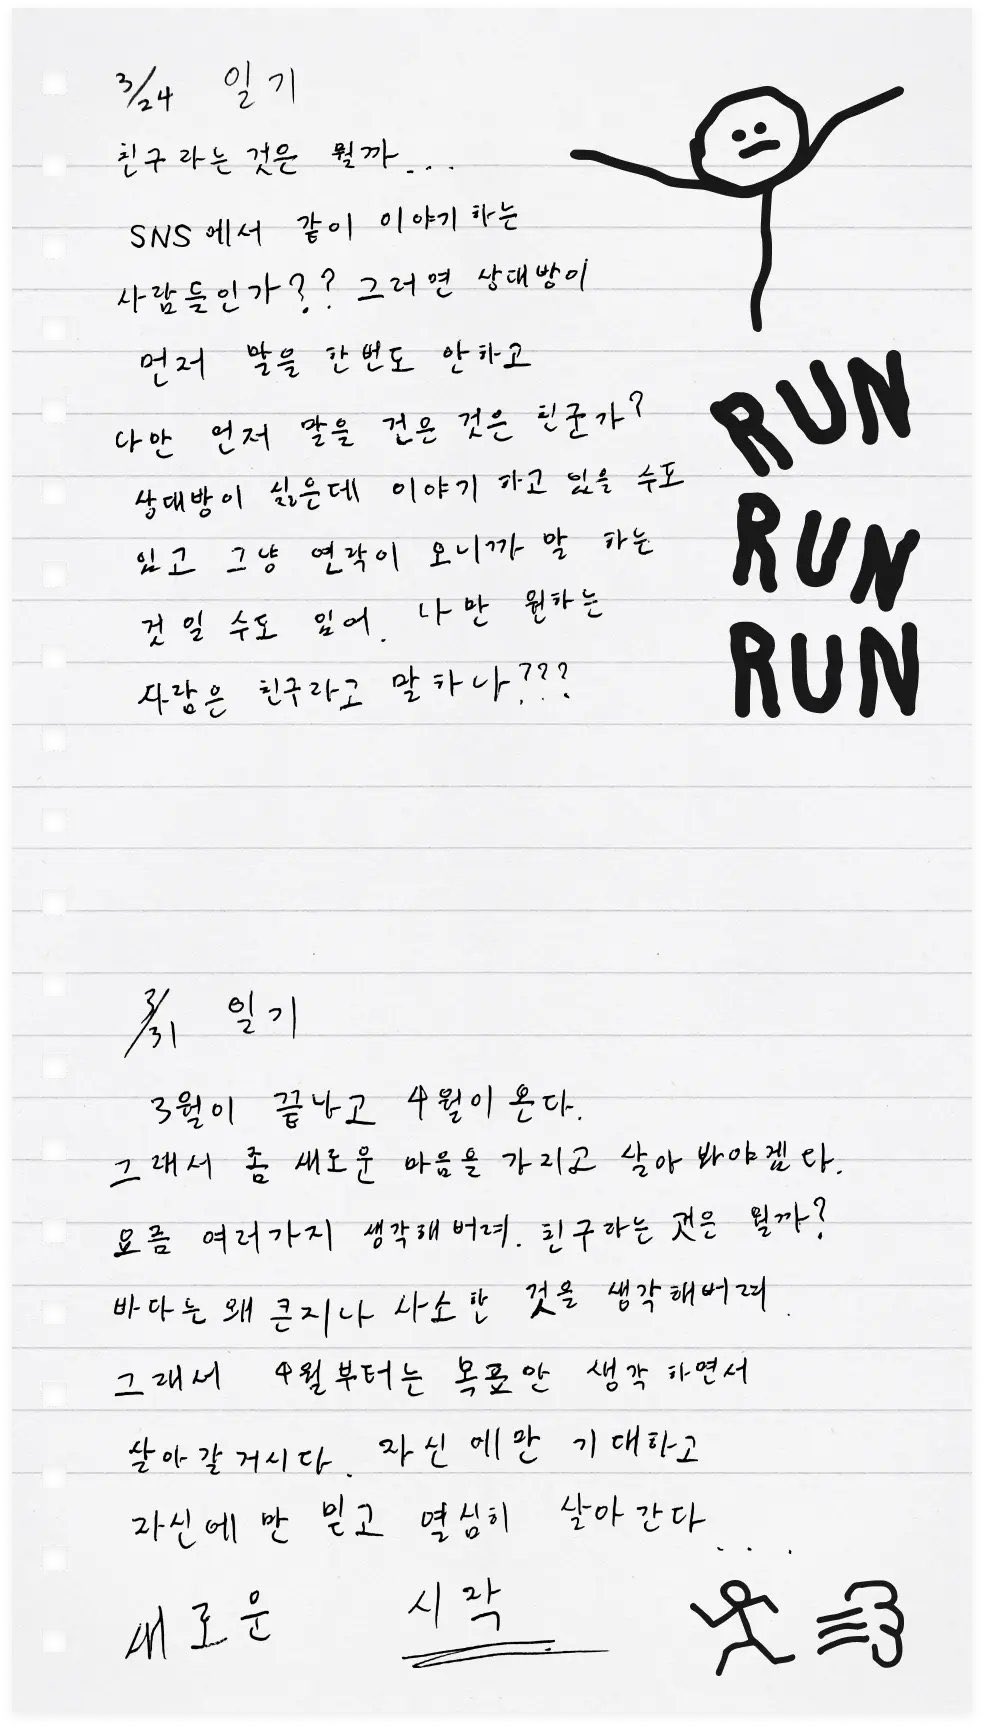 3/24 일기
친구라는 것은 뭘까...
SNS에서 같이 이야기하는
사람들인가?? 그러면 상대방이
먼저 말을 한번도 안하고
나만 먼저 말을 건은 것은 친군가?
상대방이 싫은데 이야기 하고 있을 수도
있고 그냥 연락이 오니까 말 하는
것일 수도 있어. 나만 원하는
사람은 친구라고 말하나???
RUN
RUN
RUN
3/31 일기
3월이 끝나고 4월이 온다.
그래서 좀 새로운 마음을 가지고 살아 봐야겠다.
요즘 여러가지 생각해버려. 친구라는 것은 뭘까?
바다는 왜 큰지나 사소한 것을 생각해버려.
그래서 4월부터는 목표만 생각 하면서
살아갈거시다. 자신에만 기대하고
자신에만 믿고 열심히 살아간다...
새로운 시작